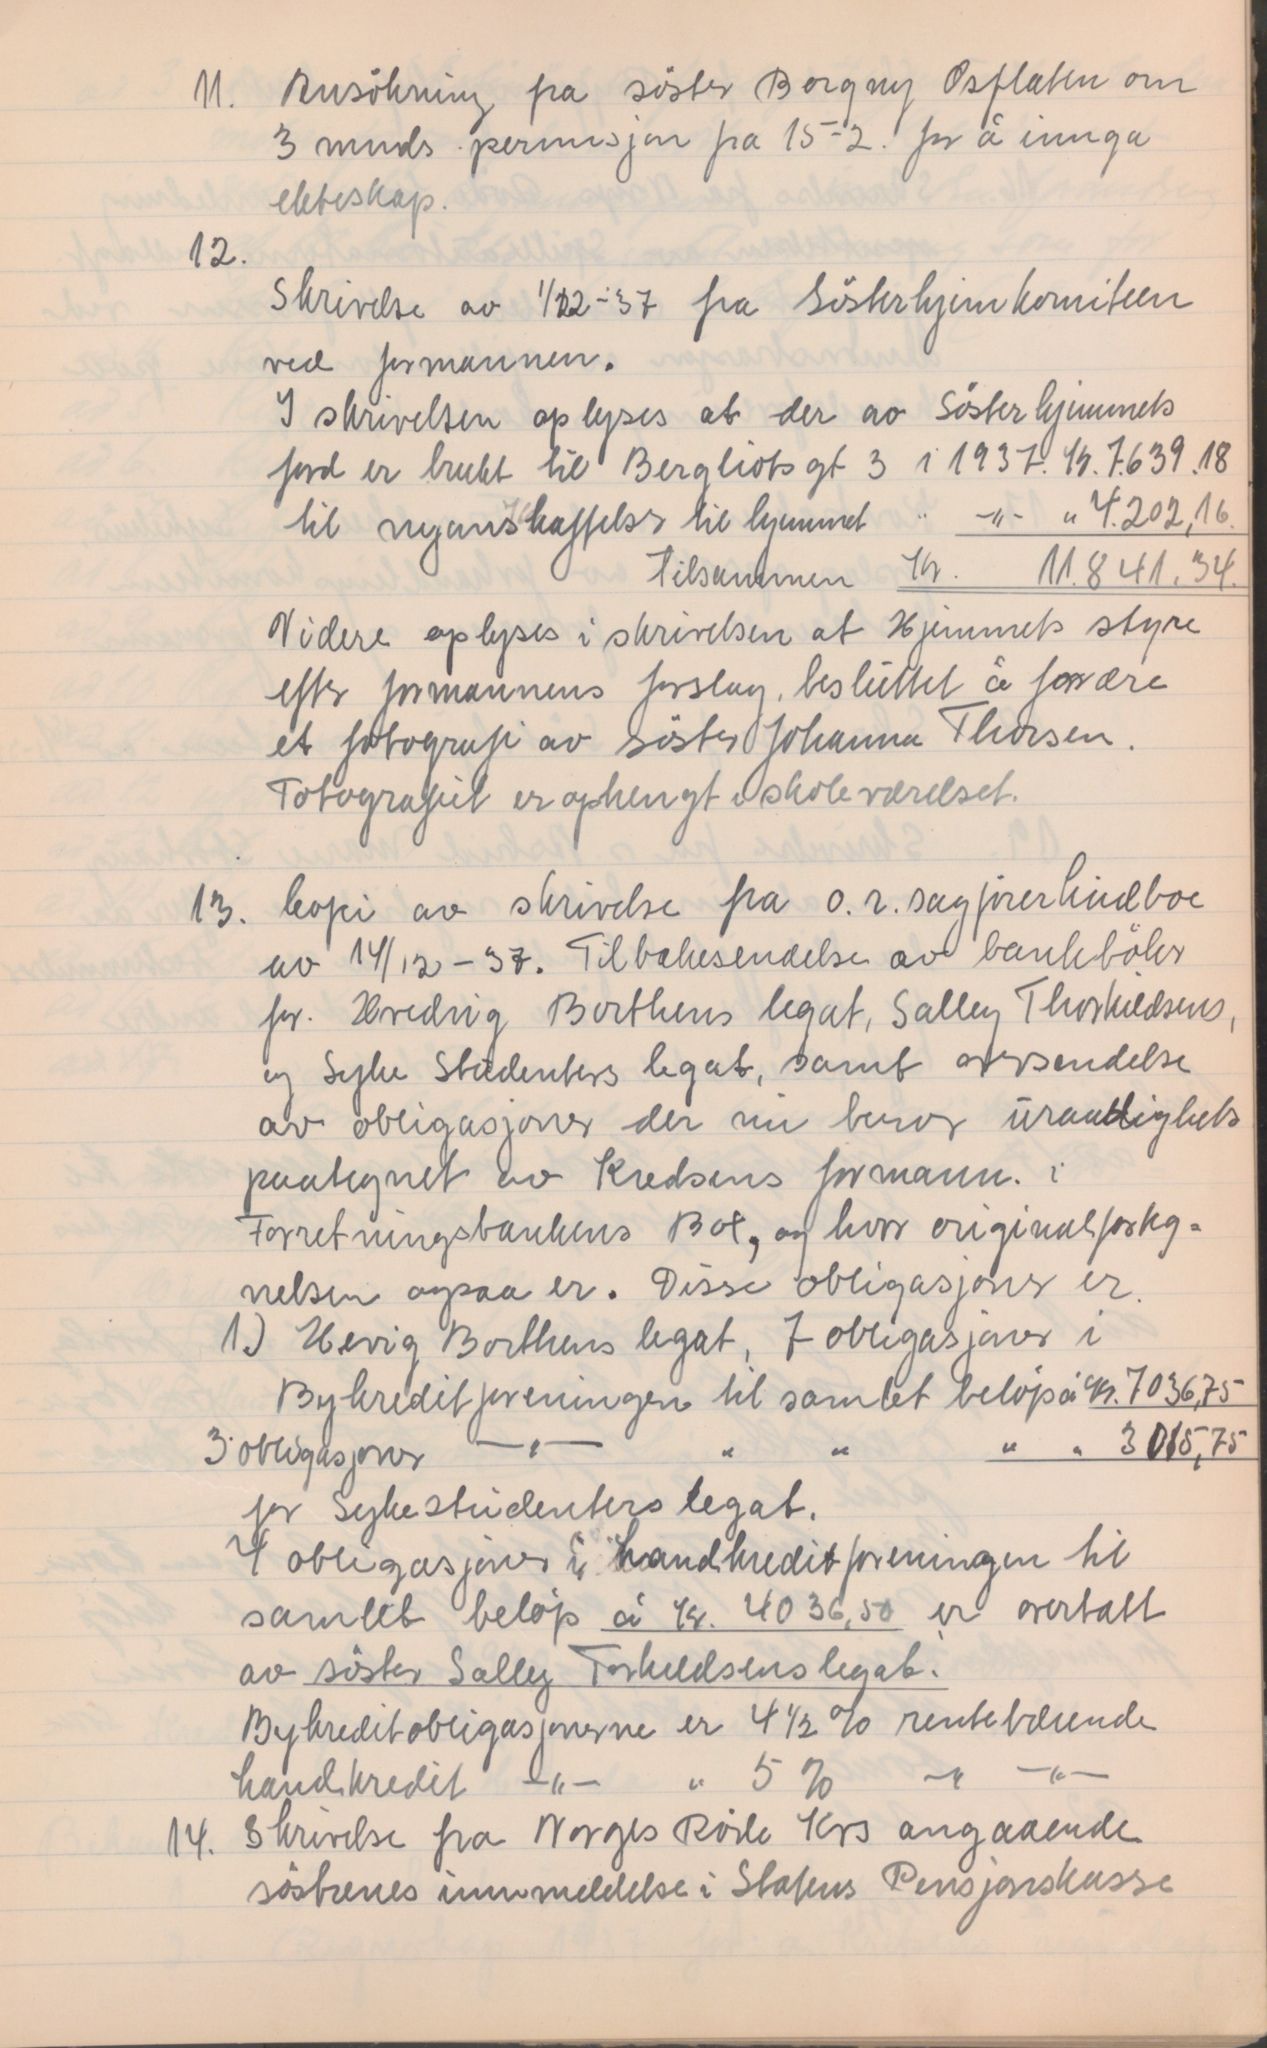 11. Ansökning fra söster Borgny Osflaten om
3 mnds permisjon fra 15-2. for å innga
ekteskap.
12.
Skrivelse av 1/12-37 fra Sösterhjemkomiteen
ved formannen.
I skrivelsen oplyses at der av Sösterhjemmets
fond er brukt til Bergliotsgt 3 i 1937. Kr. 7.639.18
til nyanskaffelser til hjemmet " -"- " 4.202,16.
Tilsammen Kr. 11.841.34.
Videre oplyses i skrivelsen at Hjemmets styre
efter formannens forslag, besluttet å forære
et fotografi av söster Johanna Thorsen.
Fotografiet er ophengt i skoleværelset.
13. Copi av skrivelse fra o.r.sagförer Lindboe
av 14/12-37. Tilbakesendelse av bankböker
for Hredvig Borthens legat, Salley Thorkildsens,
og Syke Studenters legat, samt oversendelse
av obligasjoner der nu beror uraadighets
paategnet av Kredsens formann. i
Forretningsbankens Box, og hvor originalforteg=
nelsen ogsaa er. Disse obligasjoner er.
1.) Hevig Borthens legat, 7 obligasjoner i
Bykreditforeningen til samlet belöp å Kr. 7036,75
3 obligasjoner -"- " " " " 3015,75
for Sykestudenters legat.
4 obligasjoner i Landkreditforeningen til
samlet belöp å Kr. 4036,50 er overtatt
av söster Salley Torkeldsens legat.
Bykreditobligasjonerne er 4 1/2 % rentebærende
Landkredit -"- " 5 % -" -"-
14. Skrivelse fra Norges Röde Krs angaaende
söstrenes innmeldelse i Statens Pensjonskasse